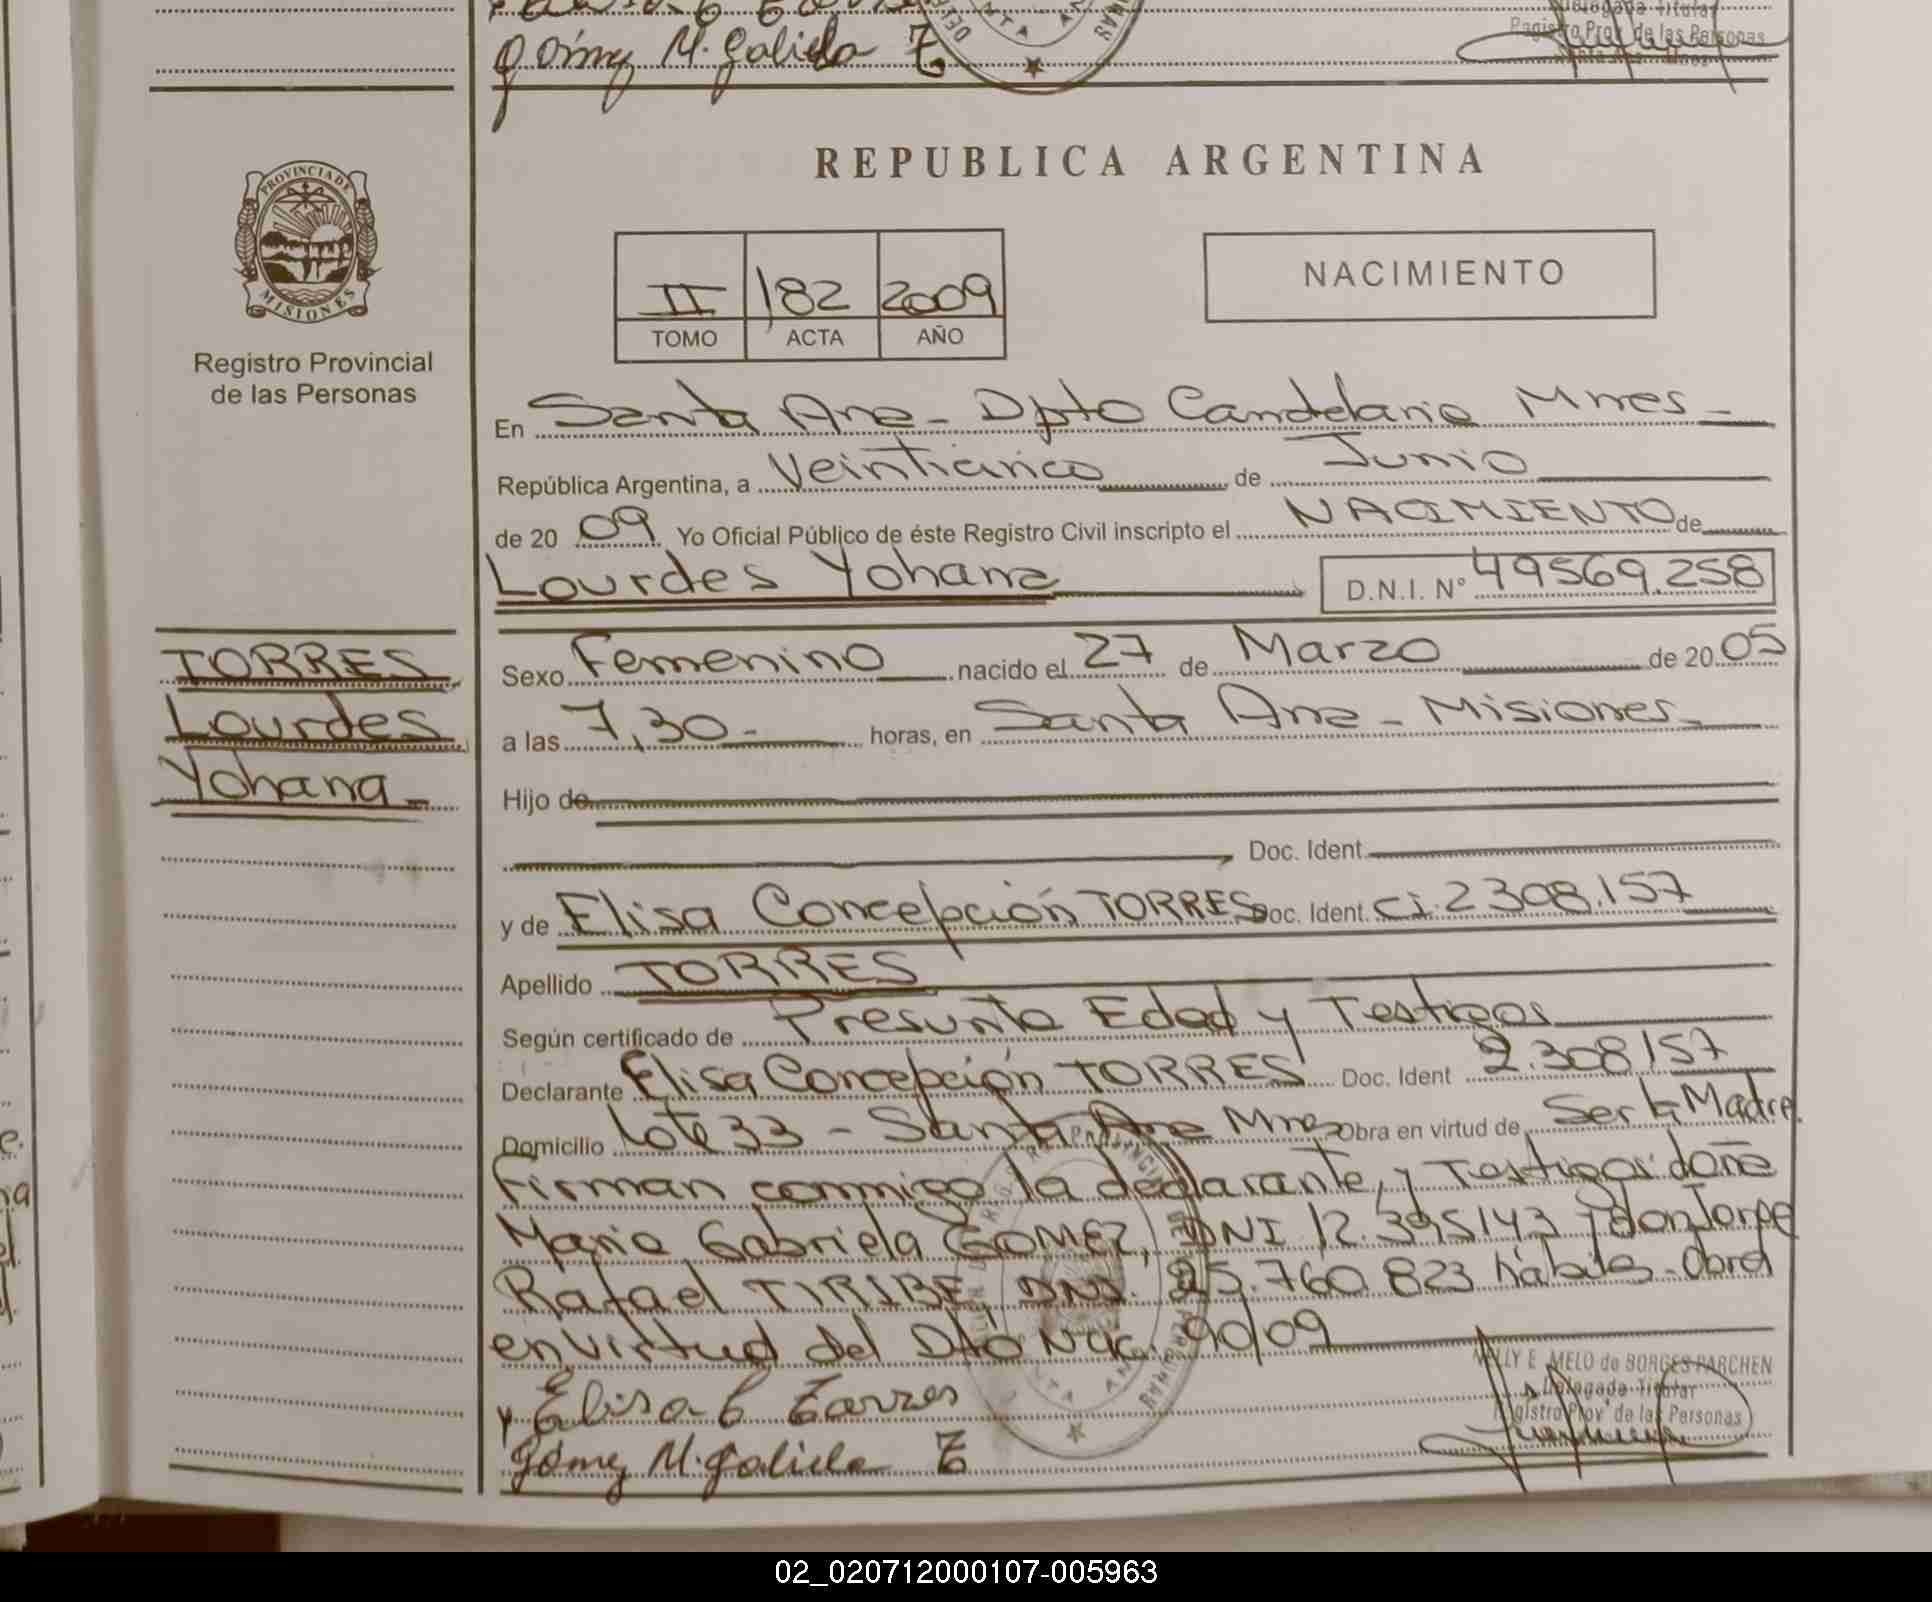 Gómez M. Gabiela
Registro Prov. de las Personas
REPUBLICA ARGENTINA
PROVINCIA DE
MISIONES
Registro Provincial
de las Personas
II 182 2009
TOMO ACTA AÑO
NACIMIENTO
En Santa Ana - Dpto Candelaria Mnes -
República Argentina, a Veinticinco de Junio
de 20 09 Yo Oficial Público de éste Registro Civil inscripto el NACIMIENTO de
Lourdes Yohana D.N.I. Nº 49569.258
TORRES
Lourdes
Yohana
Sexo Femenino nacido el 27 de Marzo de 20 05
a las 7,30 - horas, en Santa Ana - Misiones -
Hijo de
Doc. Ident.
y de Elisa Concepción TORRES Doc. Ident. ci. 2308.157
Apellido TORRES
Según certificado de Presunta Edad y Testigos
Declarante Elisa Concepción TORRES Doc. Ident 2.308157
Domicilio Lote 33 - Santa Ana Mnes Obra en virtud de Ser la Madre.
Firman conmigo la declarante, y Testigos doña
Maria Gabriela GOMEZ, DNI 12.395143 y don Jorge
Rafael TIRIBE, DNI. 25.760.823 hábiles - Obra
en virtud del Dto Nac. 90/09
Elisa C Torres
Gómez M. Gabiela
NELLY E. MELO de BORGES PARCHEN
Delegada Titular
Registro Prov. de las Personas
02_020712000107-005963